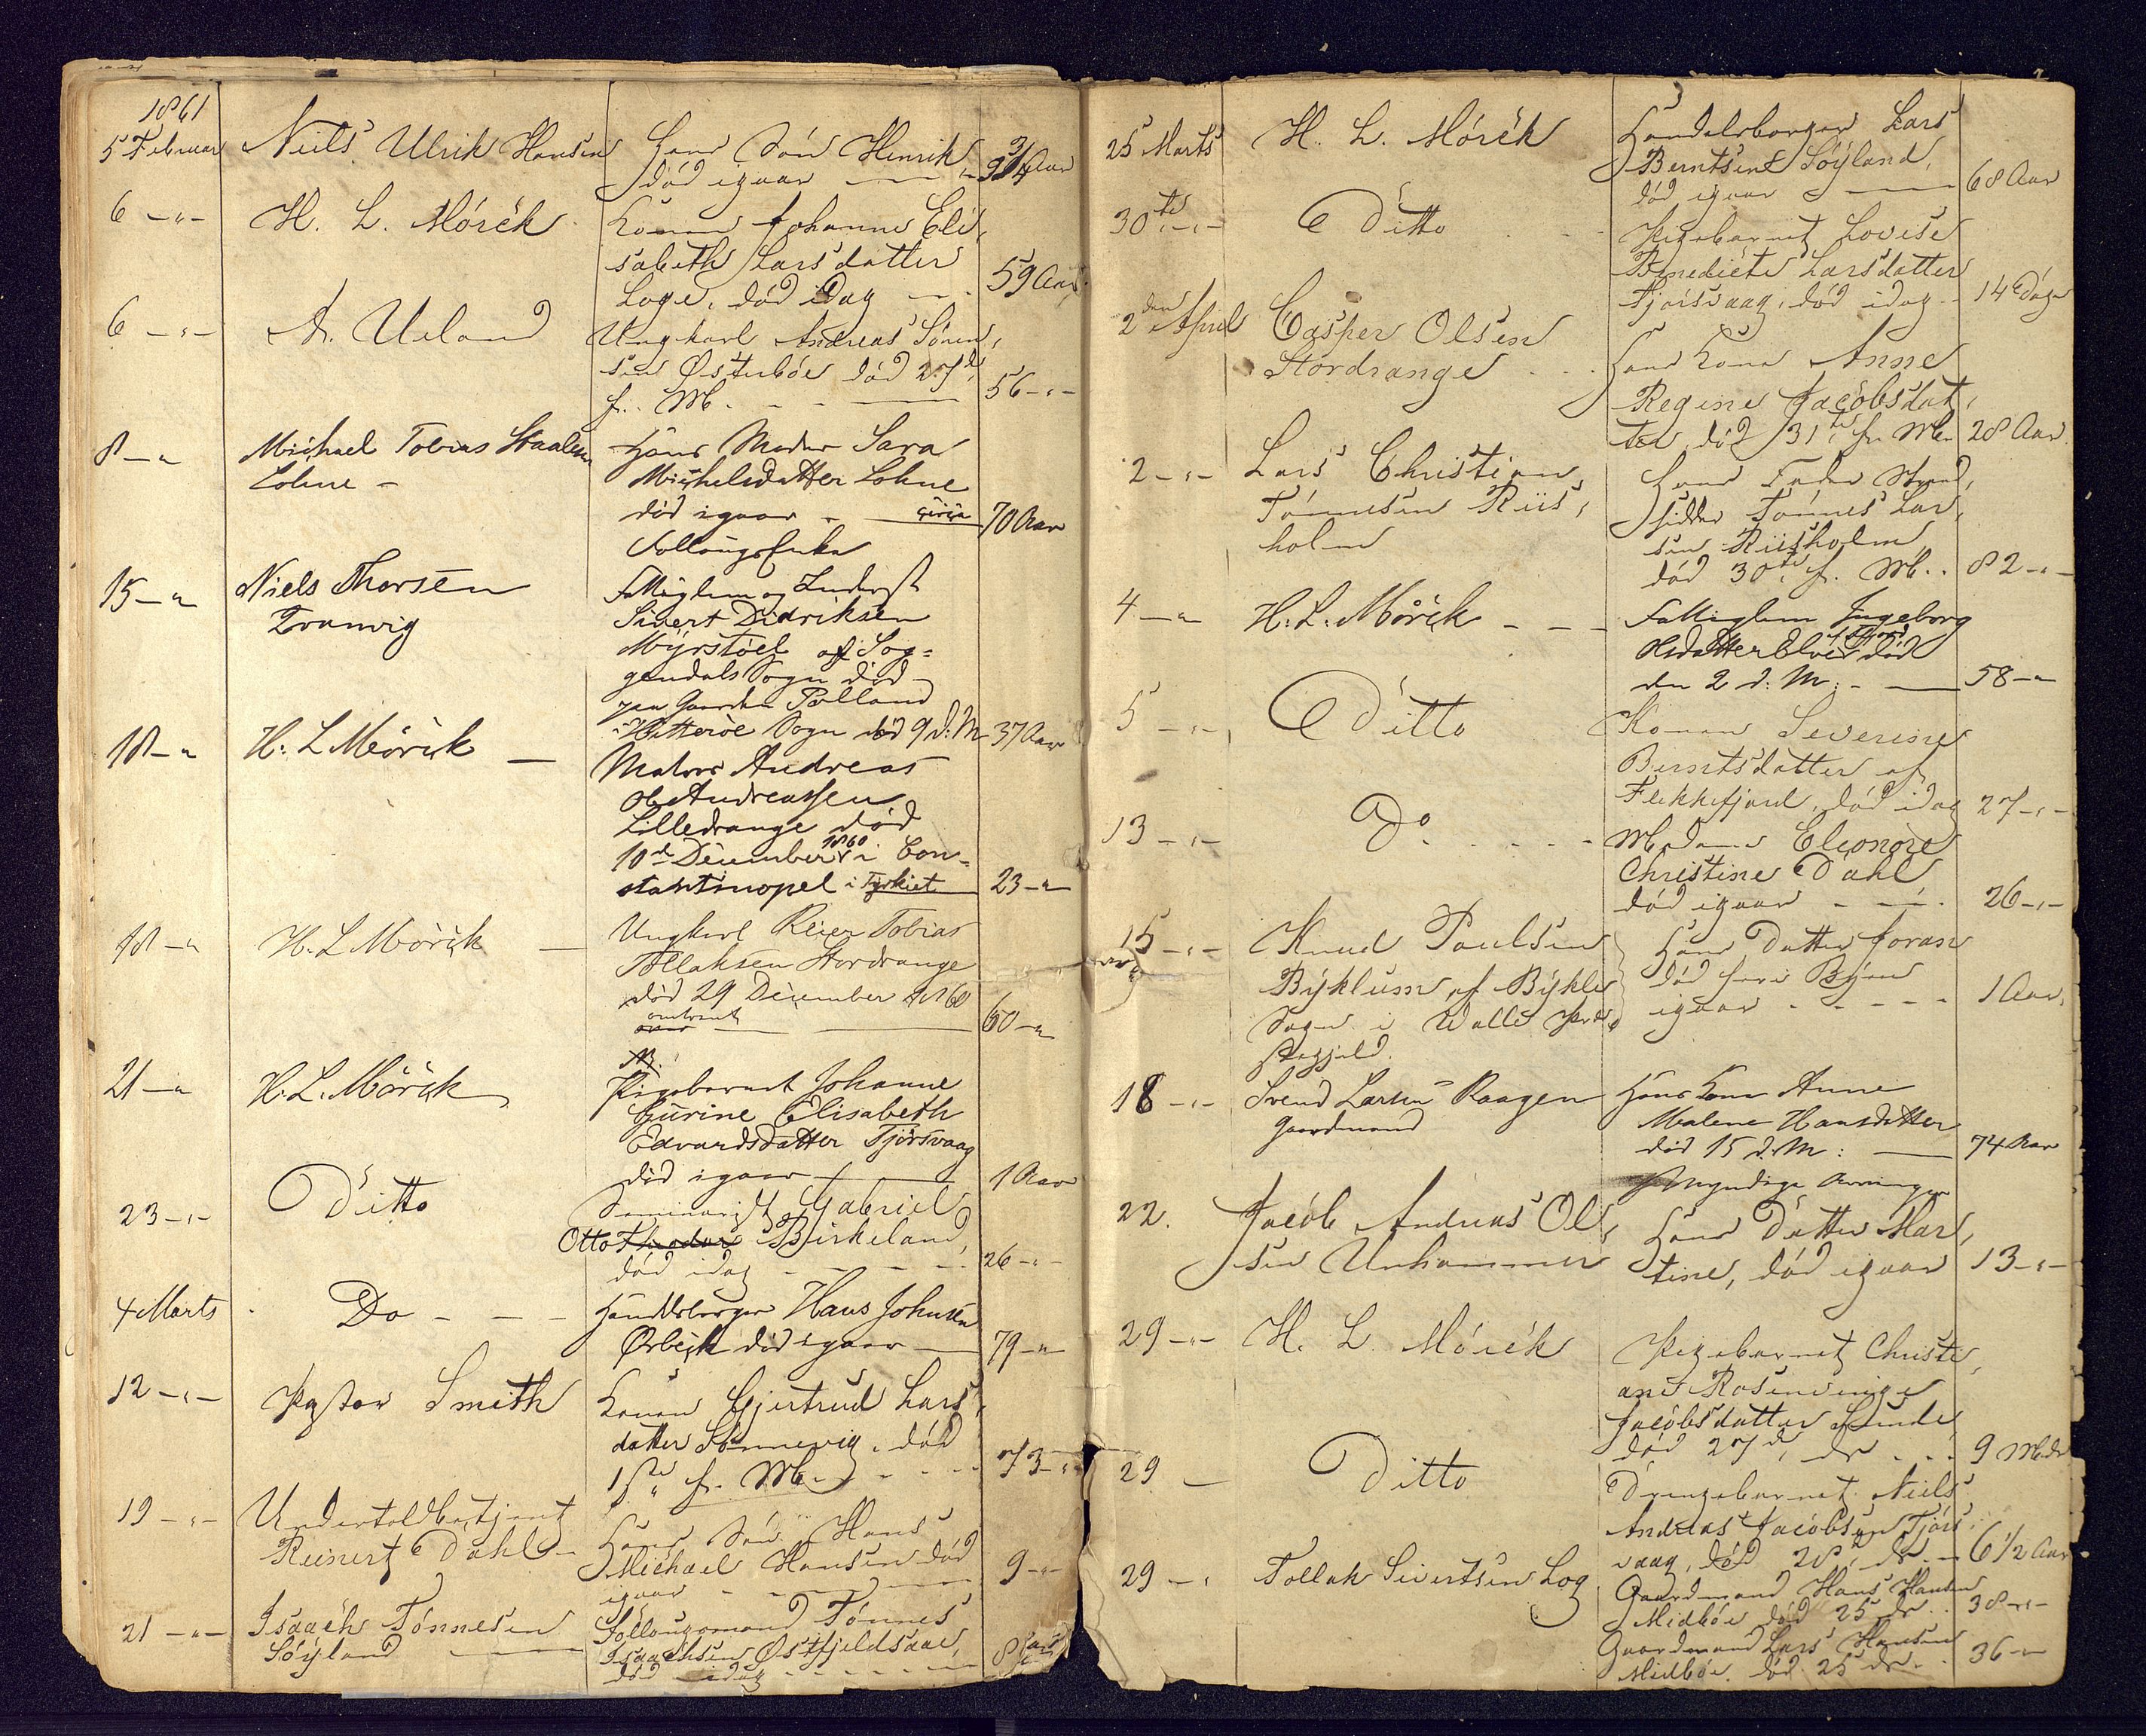 1861
5 Februar Niels Ulrik Hansen Hans Søn Henrik
død igaar 3/4 Aar
6 -"- H. L. Mörck Konen Johanne Eli,
sabeth Larsdatter
Loge, død idag 59 Aar
6 -"- A. Ueland Ungkarl Andreas Sören,
sen Østerböe død 27de
f. M. 56 -"-
8 -"- Michael Tobias Staalesen
Lohne - Hans Moder Sara
Michelsdatter Lohne
død igaar circa 70 Aar
Follaugsenke
15 -"- Niels Thorsen
Tranvig Fattiglem og Inderst
Sivert Didriksen
Myrstöel af Sog=
gendals Sogn død
paa Gaarden Rølland
Hitteröe Sogn død 9 d: M 37 Aar
18 -"- H. L Mörck Matros Andreas
Ole Andreassen
Lilledrange død
10de December 1860 i Con=
stantinopel i Tyrkiet 23 -"-
18 -"- H. L Mörck Ungkarl Reier Tobias
Tollaksen Stordrange
död 29 December 1860
omtrent 60 -"-
21 -"- H. L. Mörck Pigebarnet Johanne
Gurine Elisabeth
Edvardsdatter Tjörsvaag
död igaar 1 Aar
23 -"- Ditto Seminarist Gabriel
Otto Birkeland,
död idag 26 -"-
4 Marts Do - - - Handelsborger Hans Johnsen
Ørbeck död igaar 79 -"-
12 -"- Pastor Smith Konen Gjertrud Lars,
datter Sönnevig, död
1ste f. M. 73 -"-
19 -"- Undertoldbetjent
Reinert Dahl - Hans Søn Hans
Michael Hansen död
igaar 9 -"-
21 -"- Isaach Tönnesen
Söyland Follaugsmand Tönnes
Isaachsen Østfjeldsaae,
død idag
25 Marts H. L. Mörck Handelsborger Lars
Berntsen Söyland,
död igaar 68 Aar
30te -"- Ditto Pigebarnet Lovise
Benedicte Larsdatter
Tjörsvaag, död idag 14 Dage
2den April Casper Olsen
Stordrange Hans Kone Anne
Regine Jacobsdat,
ter, död 31te f. M. 28 Aar
2 -"- Lars Christian
Tönnesen Riis,
holm Hans Fader Strand,
sidder Tönnes Lar,
sen Riisholm
död 30te f. M. 82 -"-
4 -"- H. L. Mörck - - Fattiglem Ingeborg
Olsdatter död
den 2 d: M: 58 -"-
5 -"- Ditto Konen Severine
Berntsdatter af
Flekkefjord, död idag 27 -"-
13 -"- Do Madame Eleonore
Christine Dahl
död igaar 26 -"-
15 -"- Knud Paulsen
Byklum af Bykle
Sogn i Walle Præ
stegjeld. Hans Datter Joran
död her i Byen
igaar 1 Aar
18 -"- Svend Larsen Raagen
Gaardmand Hans Kone Anne
Malene Hansdatter
död 15 d. M: 74 Aar
Myndige Arvinger
22. Jacob Andreas Ol,
sen Unhammer Hans Datter Mar,
tine, död igaar 13 -"-
29 -"- H. L. Mörck Pigebarnet Christi,
ane Rosenvinge
Jacobsdatter Lunde,
död 27de, ds 9 Mdr
29 - Ditto Drengebarnet Niels
Andreas Jacobsen Tjörs,
vaag, död 28de ds 6 1/2 Aar
29 -"- Tollak Sivertsen Log Gaardmand Hans Hansen
Midböe död 25 ds 38 -"-
Gaardmand Lars Hansen
Midböe, död 25 ds 36 -"-